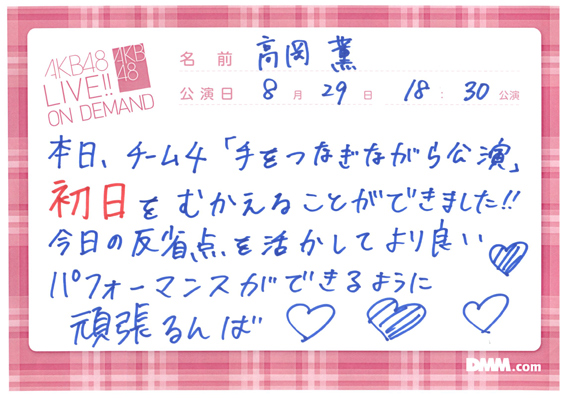 AKB48
LIVE!!
ON DEMAND
AKB
48
名前 高岡 薫
公演日 8月29日 18:30公演
本日、チーム4「手をつなぎながら公演」
初日をむかえることができました!!
今日の反省点を活かしてより良い
パフォーマンスができるように
頑張るんば
DMM.com